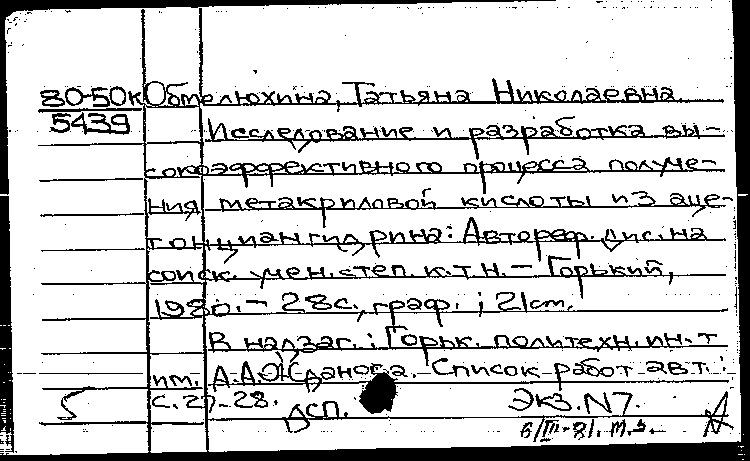 80-50к Обтелюхина, Татьяна Николаевна
5439 Исследование и разработка вы-
сокоэффективного процесса получе-
ния метакриловой кислоты из аце-
тонциангидрина: Автореф. дис. на
соиск. учен. степ. к.т.н. – Горький,
1980. – 28с., граф. ; 21cm.
В надзаг.: Горьк. политехн. ин-т
им. А.А. Жданова. Список работ авт.:
с. 27-28.
5 ДСП. Экз. N7.
6/III-81. м.з.